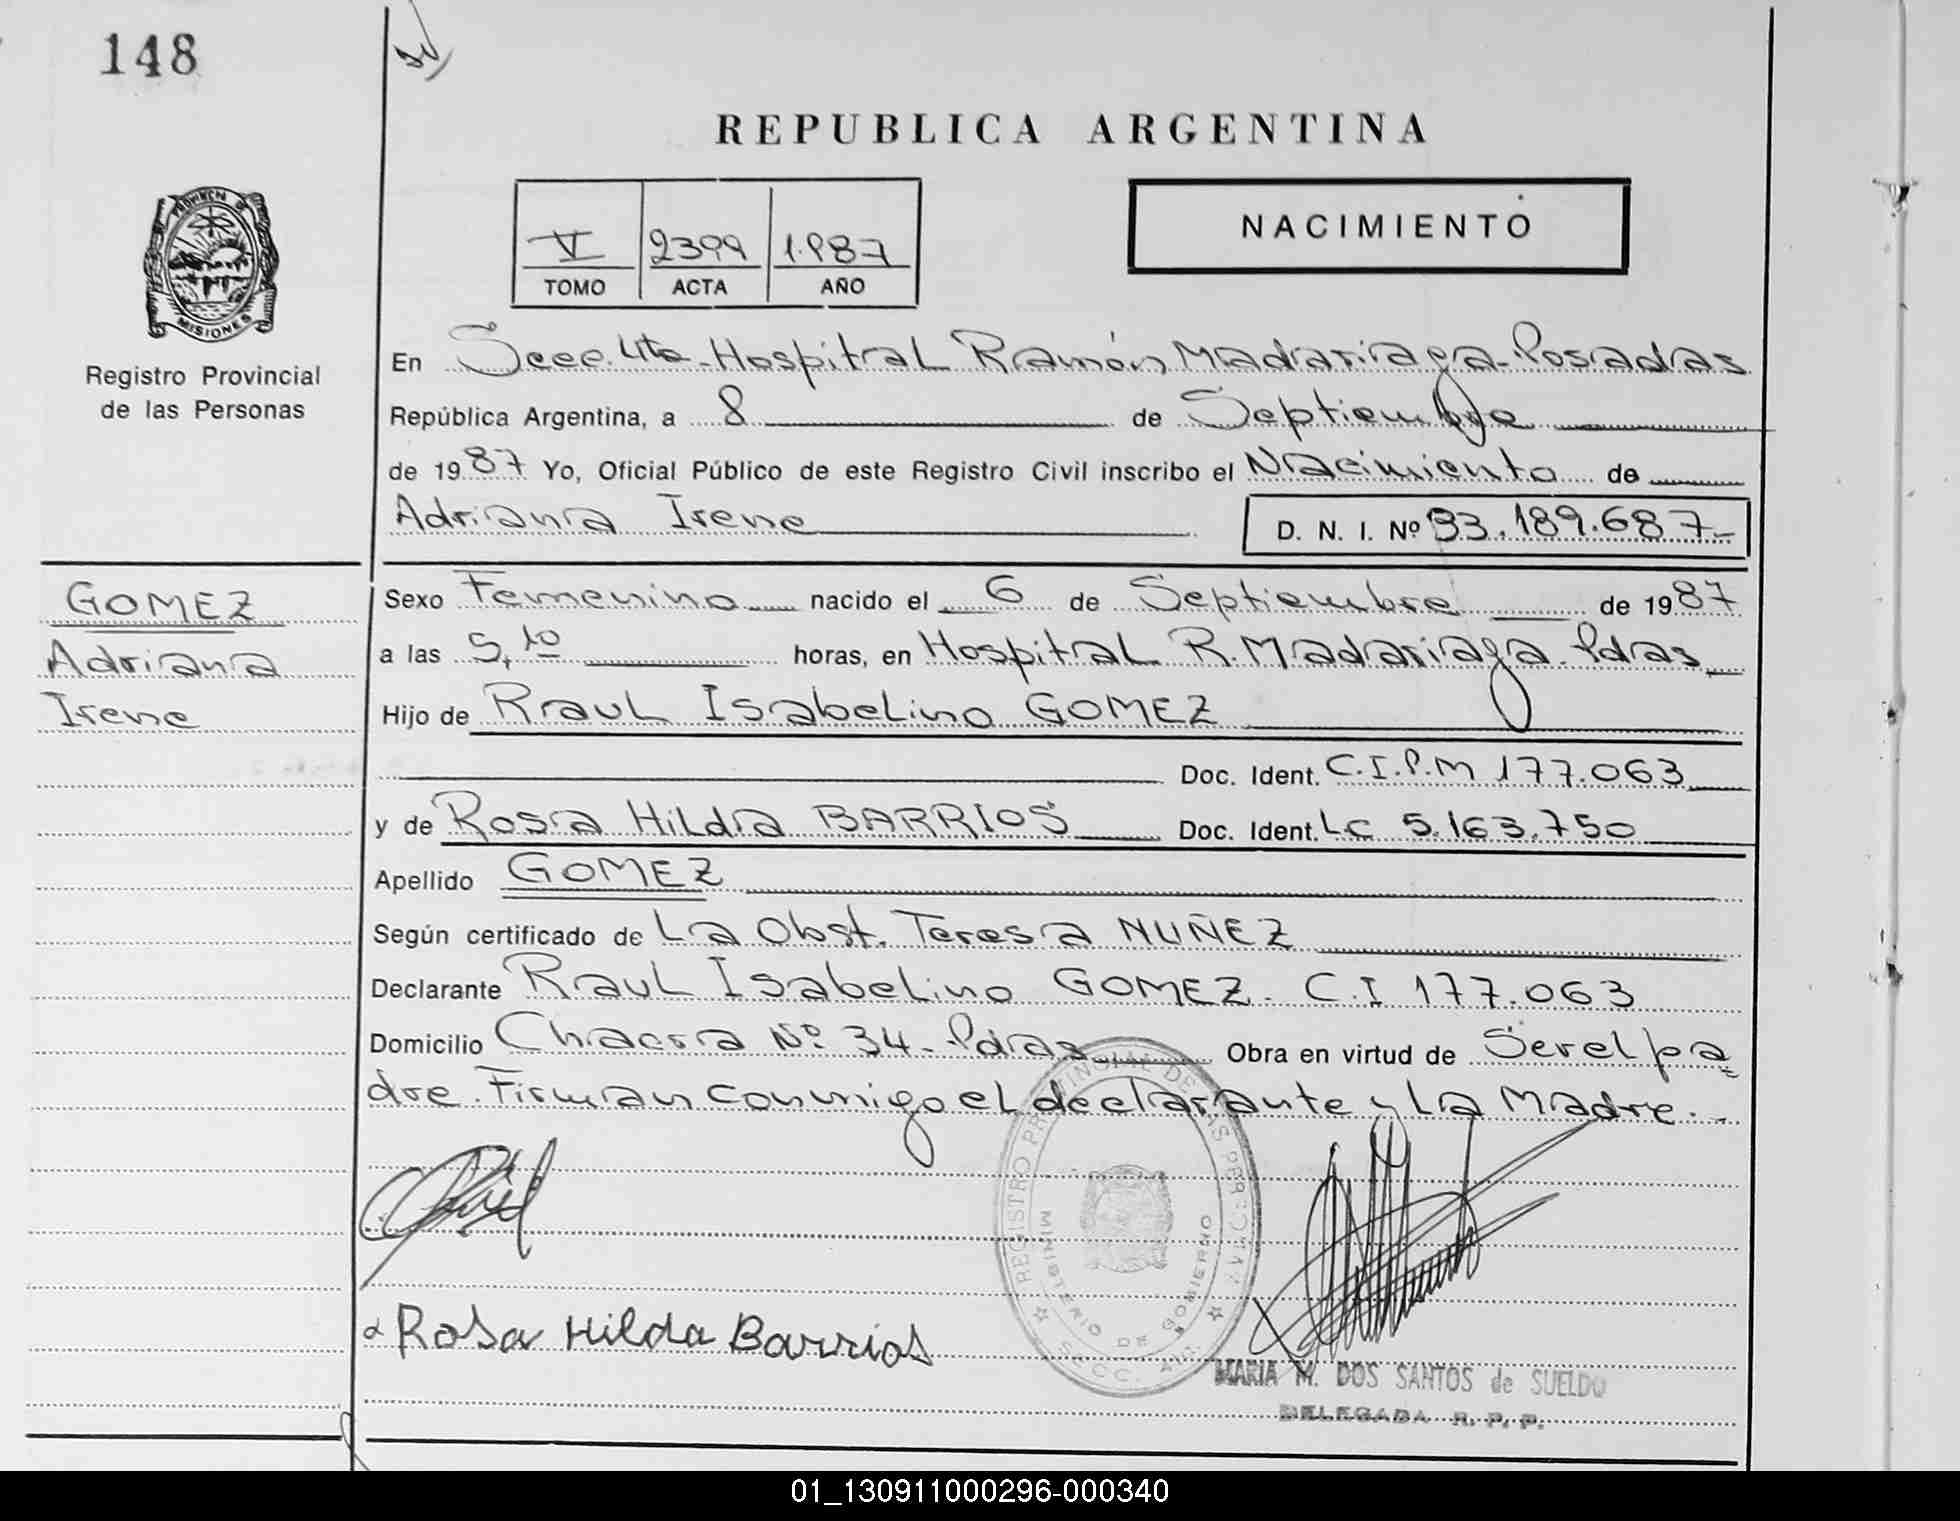 148
REPUBLICA ARGENTINA
V 2399 1.987
TOMO ACTA AÑO
NACIMIENTO
PROVINCIA DE
MISIONES
Registro Provincial
de las Personas
En Secc. 4ta - Hospital Ramón Madariaga - Posadas
República Argentina, a 8 de Septiembre
de 1987 Yo, Oficial Público de este Registro Civil inscribo el Nacimiento de
Adriana Irene
D. N. I. Nº 93.189.687-
GOMEZ
Adriana
Irene
Sexo Femenino nacido el 6 de Septiembre de 1987
a las 5,10 horas, en Hospital R. Madariaga. Pdas
Hijo de Raul Isabelino GOMEZ
Doc. Ident. C.I.P.M 177.063
y de Rosa Hilda BARRIOS Doc. Ident. LC 5.163.750
Apellido GOMEZ
Según certificado de La Obst. Teresa NUÑEZ
Declarante Raul Isabelino GOMEZ. C.I 177.063
Domicilio Chacra Nº 34 - Pdas Obra en virtud de Ser el pa=
dre. Firman conmigo el declarante y La Madre.-
REGISTRO PROVINCIAL DE LAS PERSONAS
MINISTERIO DE GOBIERNO
SECC. 4ta
Rosa Hilda Barrios
MARIA M. DOS SANTOS de SUELDO
DELEGADA R. P. P.
01_130911000296-000340